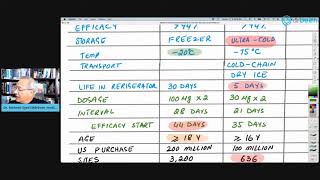 EFFICACY >94% >94%
STORAGE FREEZER ULTRA-COLD
TEMP -20°C -75°C
TRANSPORT COLD-CHAIN
DRY ICE
LIFE IN REFRIGERATOR 30 DAYS 5 DAYS
DOSAGE 100 µg x 2 30 µg x 2
INTERVAL 28 DAYS 21 DAYS
EFFICACY START 44 DAYS 35 DAYS
AGE ≥ 18 Y ≥ 16 Y
US PURCHASE 200 MILLION 100 MILLION
SITES 3,200 636